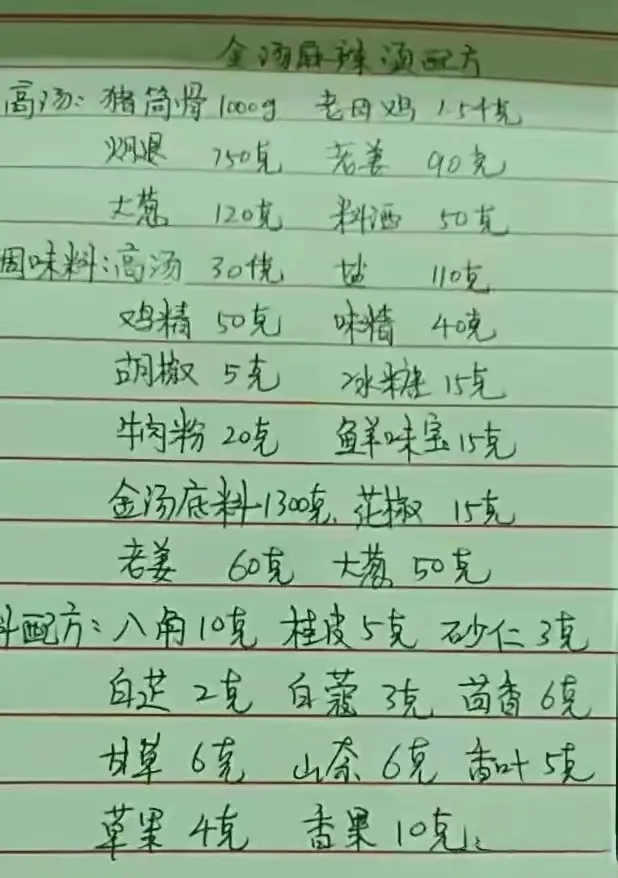 金汤麻辣烫配方
高汤: 猪筒骨 1000g 老母鸡 1.5千克
火腿 750克 老姜 90克
大葱 120克 料酒 50克
调味料: 高汤 30千克 盐 110克
鸡精 50克 味精 40克
胡椒 5克 冰糖 15克
牛肉粉 20克 鲜味宝 15克
金汤底料 1300克 花椒 15克
老姜 60克 大葱 50克
料配方: 八角 10克 桂皮 5克 砂仁 3克
白芷 2克 白蔻 3克 茴香 6克
甘草 6克 山奈 6克 香叶 5克
草果 4克 香果 10克